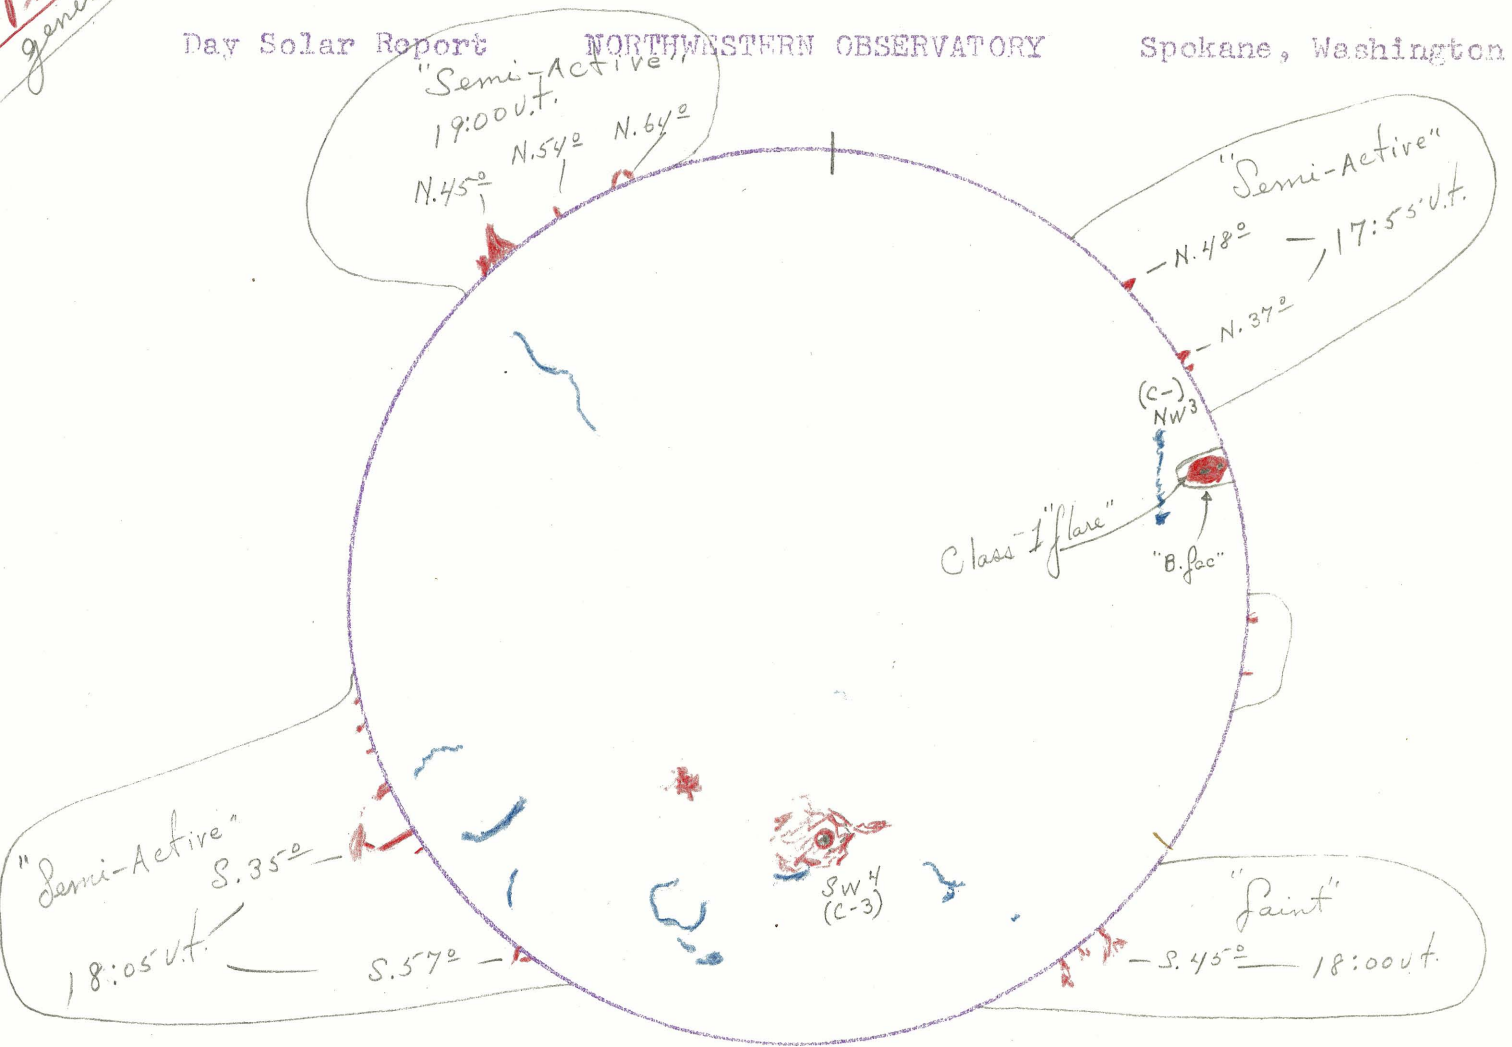 gener
Day Solar Report NORTHWESTERN OBSERVATORY Spokane, Washington
"Semi-Active"
19:00 U.t.
N.45º N.54º N.64º
"Semi-Active"
N.48º — 17:55 U.t.
N.37º
(C-)
NW3
Class-1 "flare"
"B.fac"
"Semi-Active"
S.35º
18:05 U.t.
S.57º
SW4
(C-3)
"faint"
S.45º — 18:00 U.t.